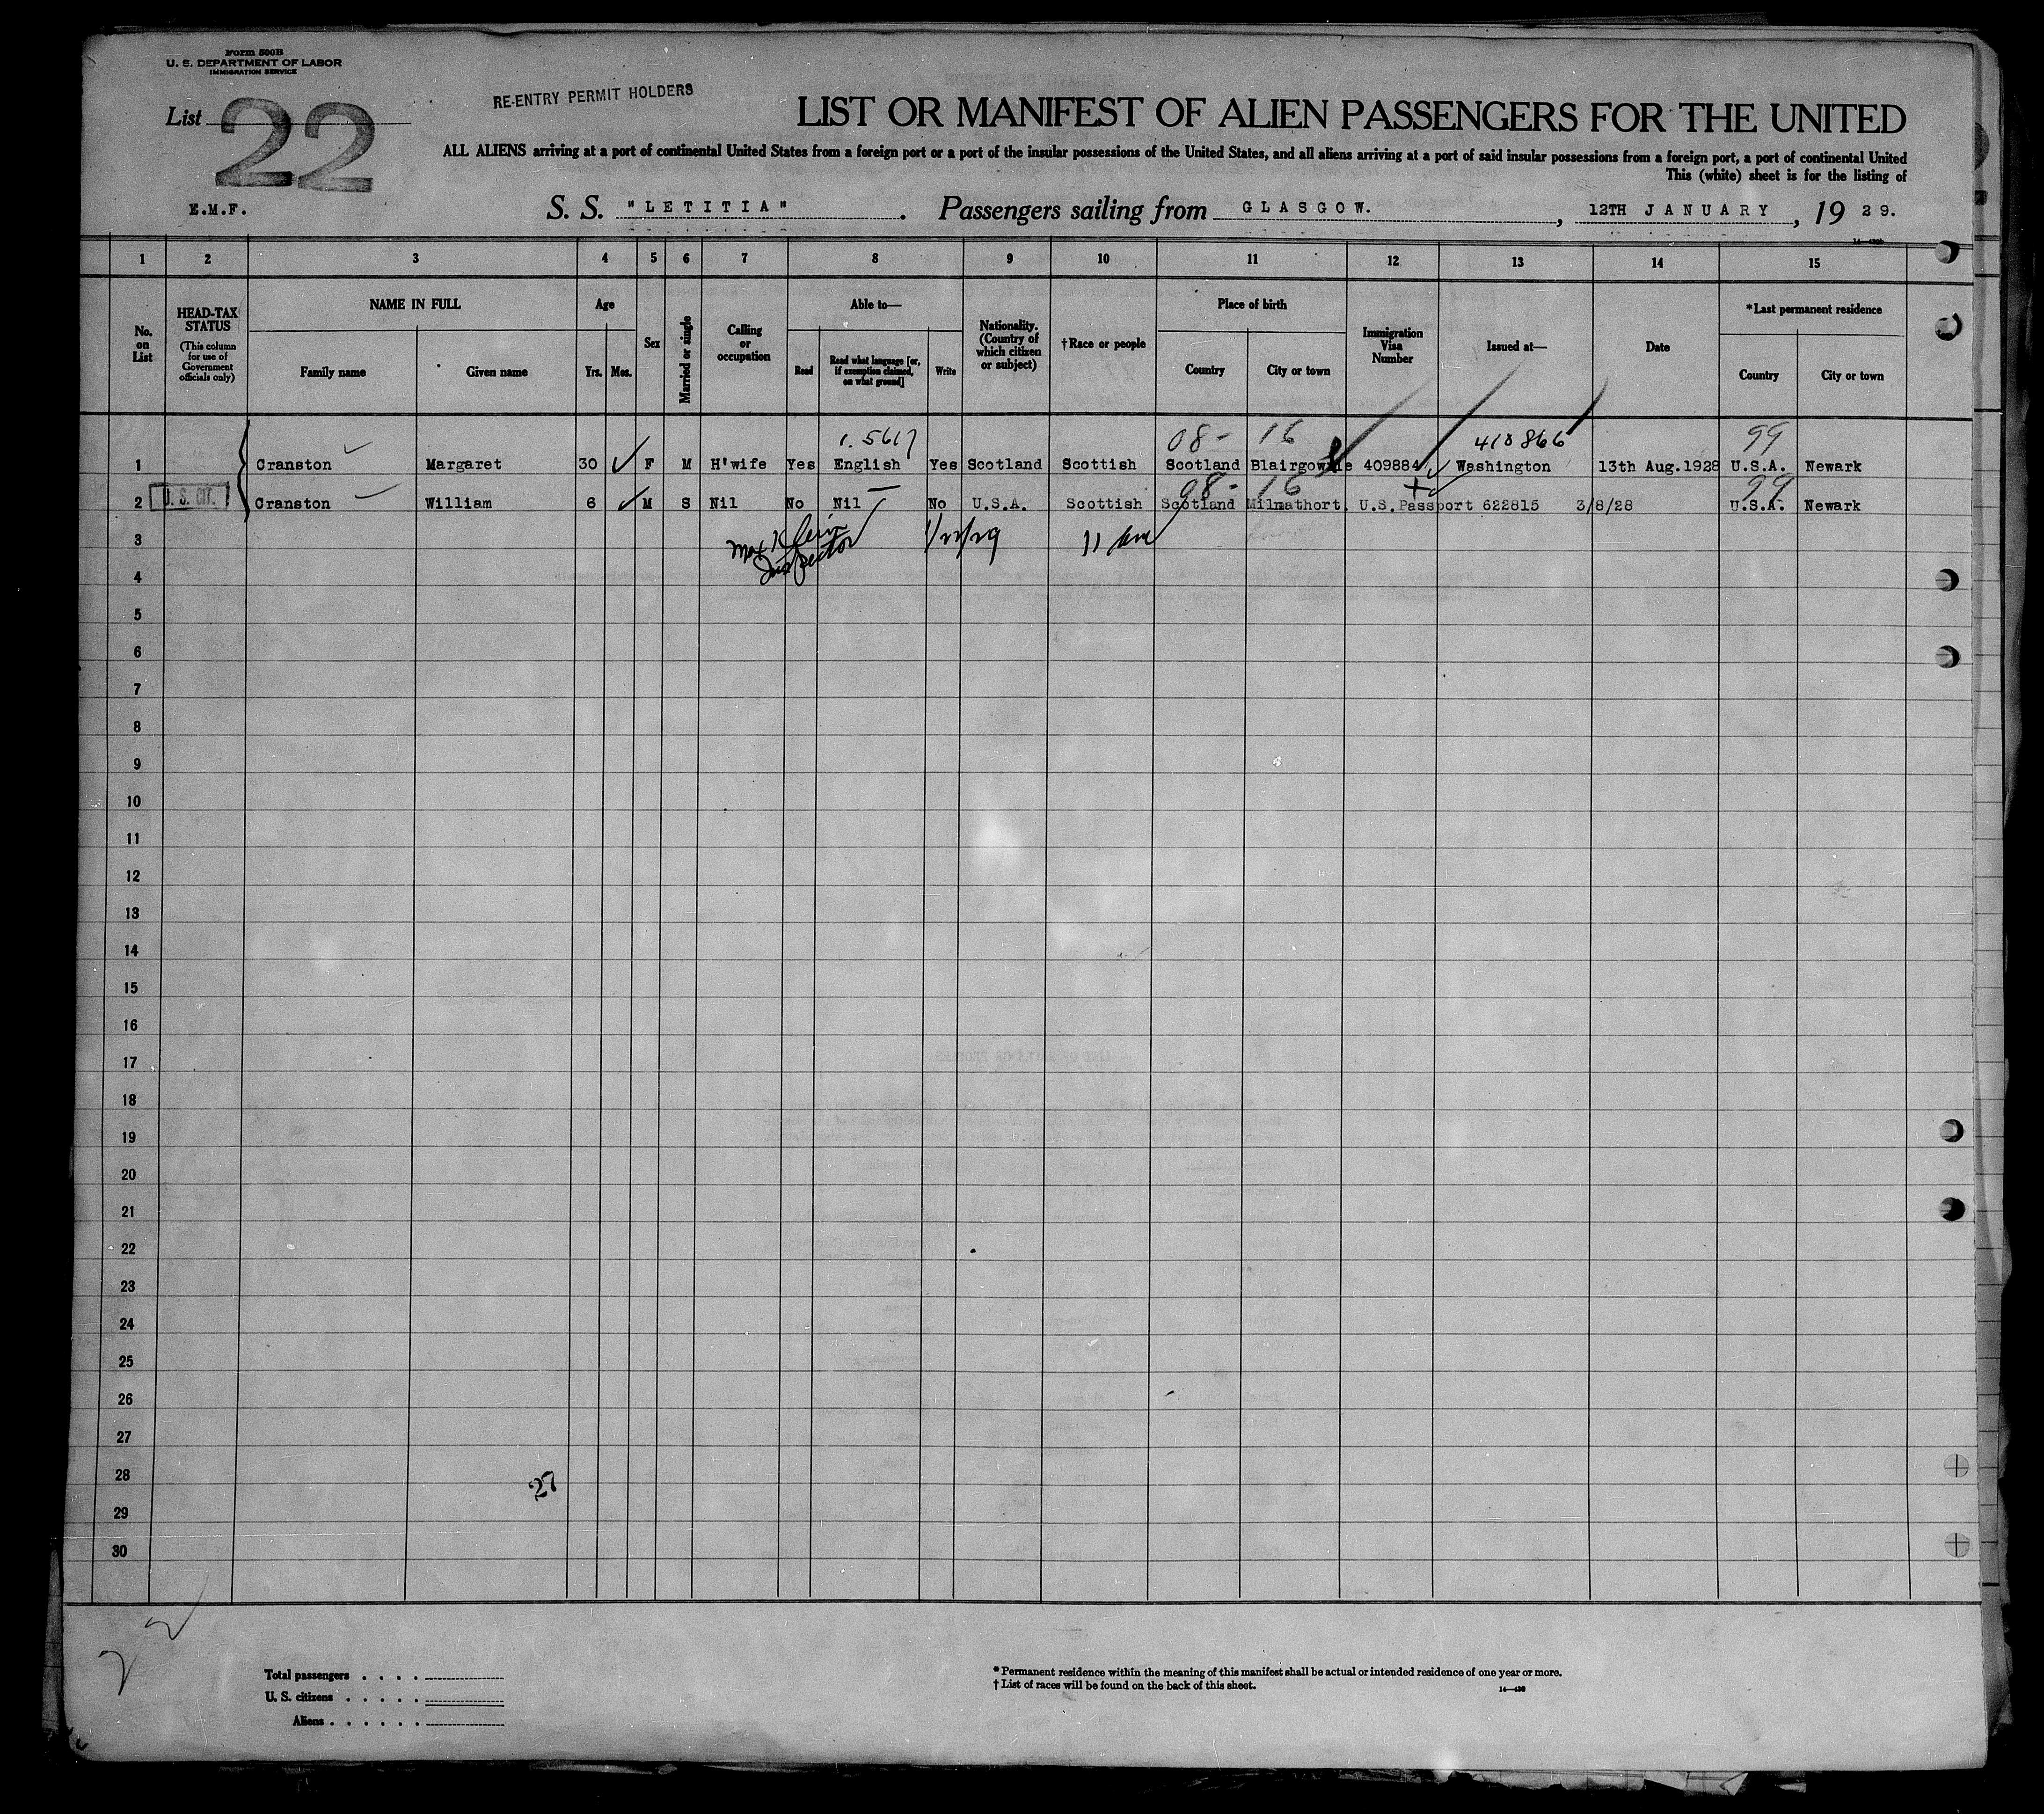 Form 500B
U. S. DEPARTMENT OF LABOR
IMMIGRATION SERVICE
List 22
RE-ENTRY PERMIT HOLDERS
LIST OR MANIFEST OF ALIEN PASSENGERS FOR THE UNITED
ALL ALIENS arriving at a port of continental United States from a foreign port or a port of the insular possessions of the United States, and all aliens arriving at a port of said insular possessions from a foreign port, a port of continental United
This (white) sheet is for the listing of
E.M.F.
S. S. "LETITIA". Passengers sailing from GLASGOW. , 12TH JANUARY, 19 29.
1 2 3 4 5 6 7 8 9 10 11 12 13 14 15
No. on List
HEAD-TAX STATUS (This column for use of Government officials only)
NAME IN FULL
Family name Given name
Age
Yrs. Mos.
Sex
Married or single
Calling or occupation
Able to—
Read Read what language [or, if exemption claimed, on what ground] Write
Nationality. (Country of which citizen or subject)
†Race or people
Place of birth
Country City or town
Immigration Visa Number
Issued at—
Date
*Last permanent residence
Country City or town
1. 5617 08- 16 410866 99
1 Cranston Margaret 30 F M H'wife Yes English Yes Scotland Scottish Scotland Blairgowrie 409884 Washington 13th Aug.1928 U.S.A. Newark
98- 16 99
2 U. S. CIT. Cranston William 6 M S Nil No Nil No U.S.A. Scottish Scotland Milnathort. U.S.Passport 622815 3/8/28 U.S.A. Newark
3 Max Klein 1/22/29 11 am
Inspector
4
5
6
7
8
9
10
11
12
13
14
15
16
17
18
19
20
21
22
23
24
25
26
27
28 27
29
30
Total passengers . . . .
U. S. citizens . . . . .
Aliens . . . . . .
* Permanent residence within the meaning of this manifest shall be actual or intended residence of one year or more.
† List of races will be found on the back of this sheet.
14—430